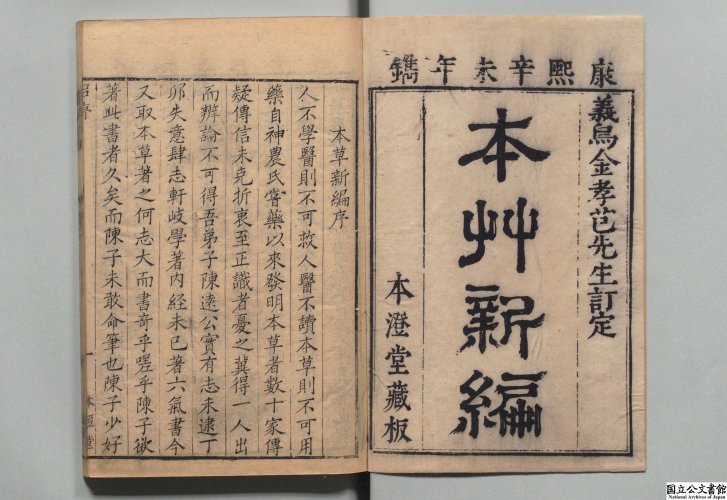 康熙辛未年鐫
義烏金孝芑先生訂定
本艸新編
本澄堂藏板
本草新編序
人不學醫則不可救人醫不讀本草則不可用
藥自神農氏嘗藥以來發明本草者數十家傳
疑傳信未克折衷至正識者憂之冀得一人出
而辨論不可得吾弟子陳遠公實有志未逮丁
卯失意肆志軒岐學著內経未已著六氣書今
又取本草著之何志大而書奇乎嗟乎陳子欲
著此書者久矣而陳子未敢命筆也陳子少好
序
一
本澄堂
国立公文書館
National Archives of Japan